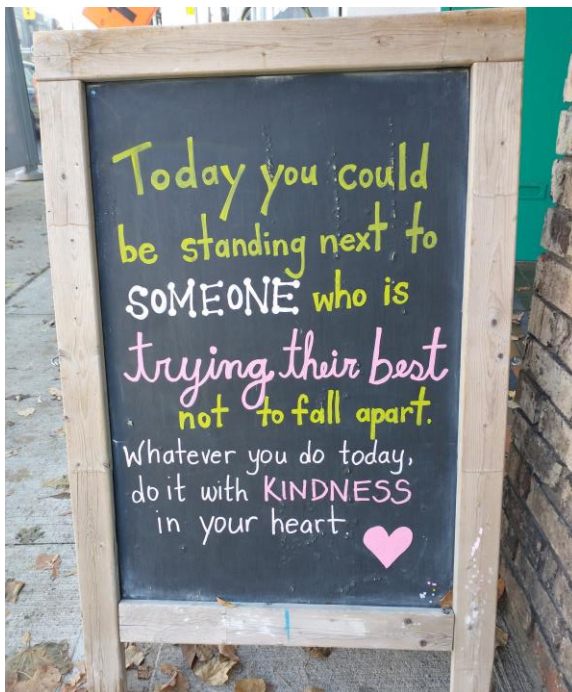 Today you could
be standing next to
SOMEONE who is
trying their best
not to fall apart.
Whatever you do today,
do it with KINDNESS
in your heart.